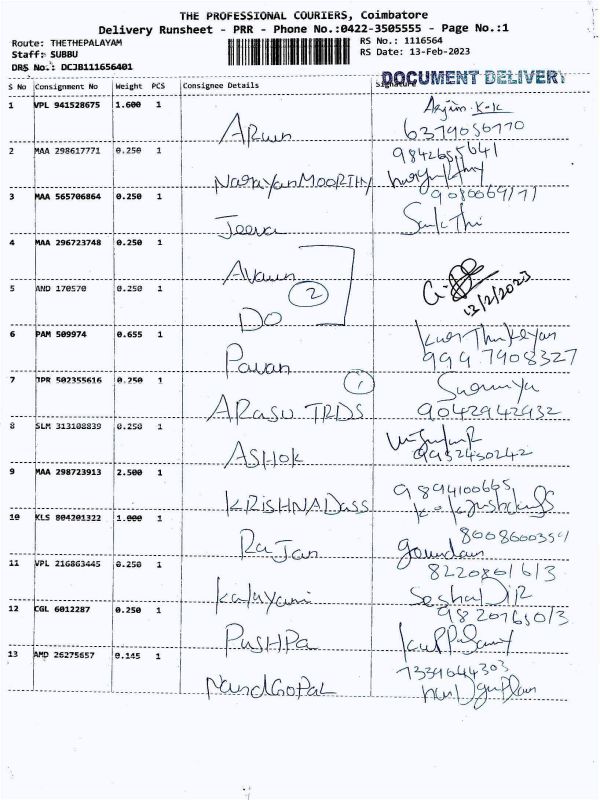 THE PROFESSIONAL COURIERS, Coimbatore
Delivery Runsheet - PRR - Phone No.:0422-3505555 - Page No.:1
Route: THETHEPALAYAM RS No.: 1116564
Staff: SUBBU RS Date: 13-Feb-2023
DRS No.: DCJB111656401
DOCUMENT DELIVERY
S No Consignment No Weight PCS Consignee Details Signature
1 VPL 941528675 1.600 1
Arjun.K.K
Arun 6379056770
2 MAA 298617771 0.250 1
9842655641
Narayan MOORTHY
3 MAA 565706864 0.250 1
Jeeva Sakthi
4 MAA 296723748 0.250 1
5 AND 170570 0.250 1
2
12/2/2023
DO
6 PAM 509974 0.655 1
Pavan 9997908327
7 JPR 502355616 0.250 1
1
Sowmiya
ARASU TRDS 9042942932
8 SLM 313108839 0.250 1
ASHOK 9952430242
9 MAA 298723913 2.500 1
9894100665
KRISHNADass
10 KLS 804201322 1.000 1
Rajan
11 VPL 216863445 0.250 1
8220801613
Kalayani
12 CGL 6012287 0.250 1
9820765013
PUSHPA Kuppusamy
13 AMD 26275657 0.145 1
7339644303
NandGOPAL